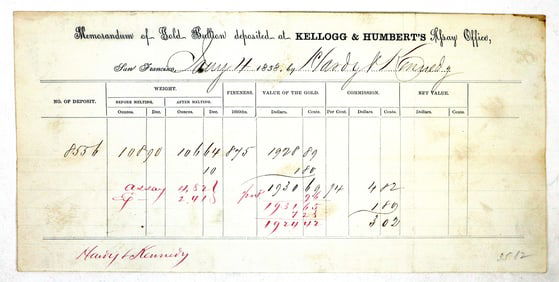 Memorandum of Gold Bullion deposited at KELLOGG & HUMBERT'S Assay Office,
San Francisco, Jany 11 1858, by Hardy & Kennedy
NO. OF DEPOSIT. WEIGHT. FINENESS. VALUE OF THE GOLD. COMMISSION. NET VALUE.
BEFORE MELTING. AFTER MELTING.
Ounces. Dec. Ounces. Dec. 1000ths. Dollars. Cents. Per Cent. Dollars. Cents. Dollars. Cents.
8556 108 90 106 64 875 1928 89
10 1 80
assay 4.82 1930 69 1/4 4 82
2.41 96 1 80
1931 65 3 02
7 23
1924 42
Hardy & Kennedy